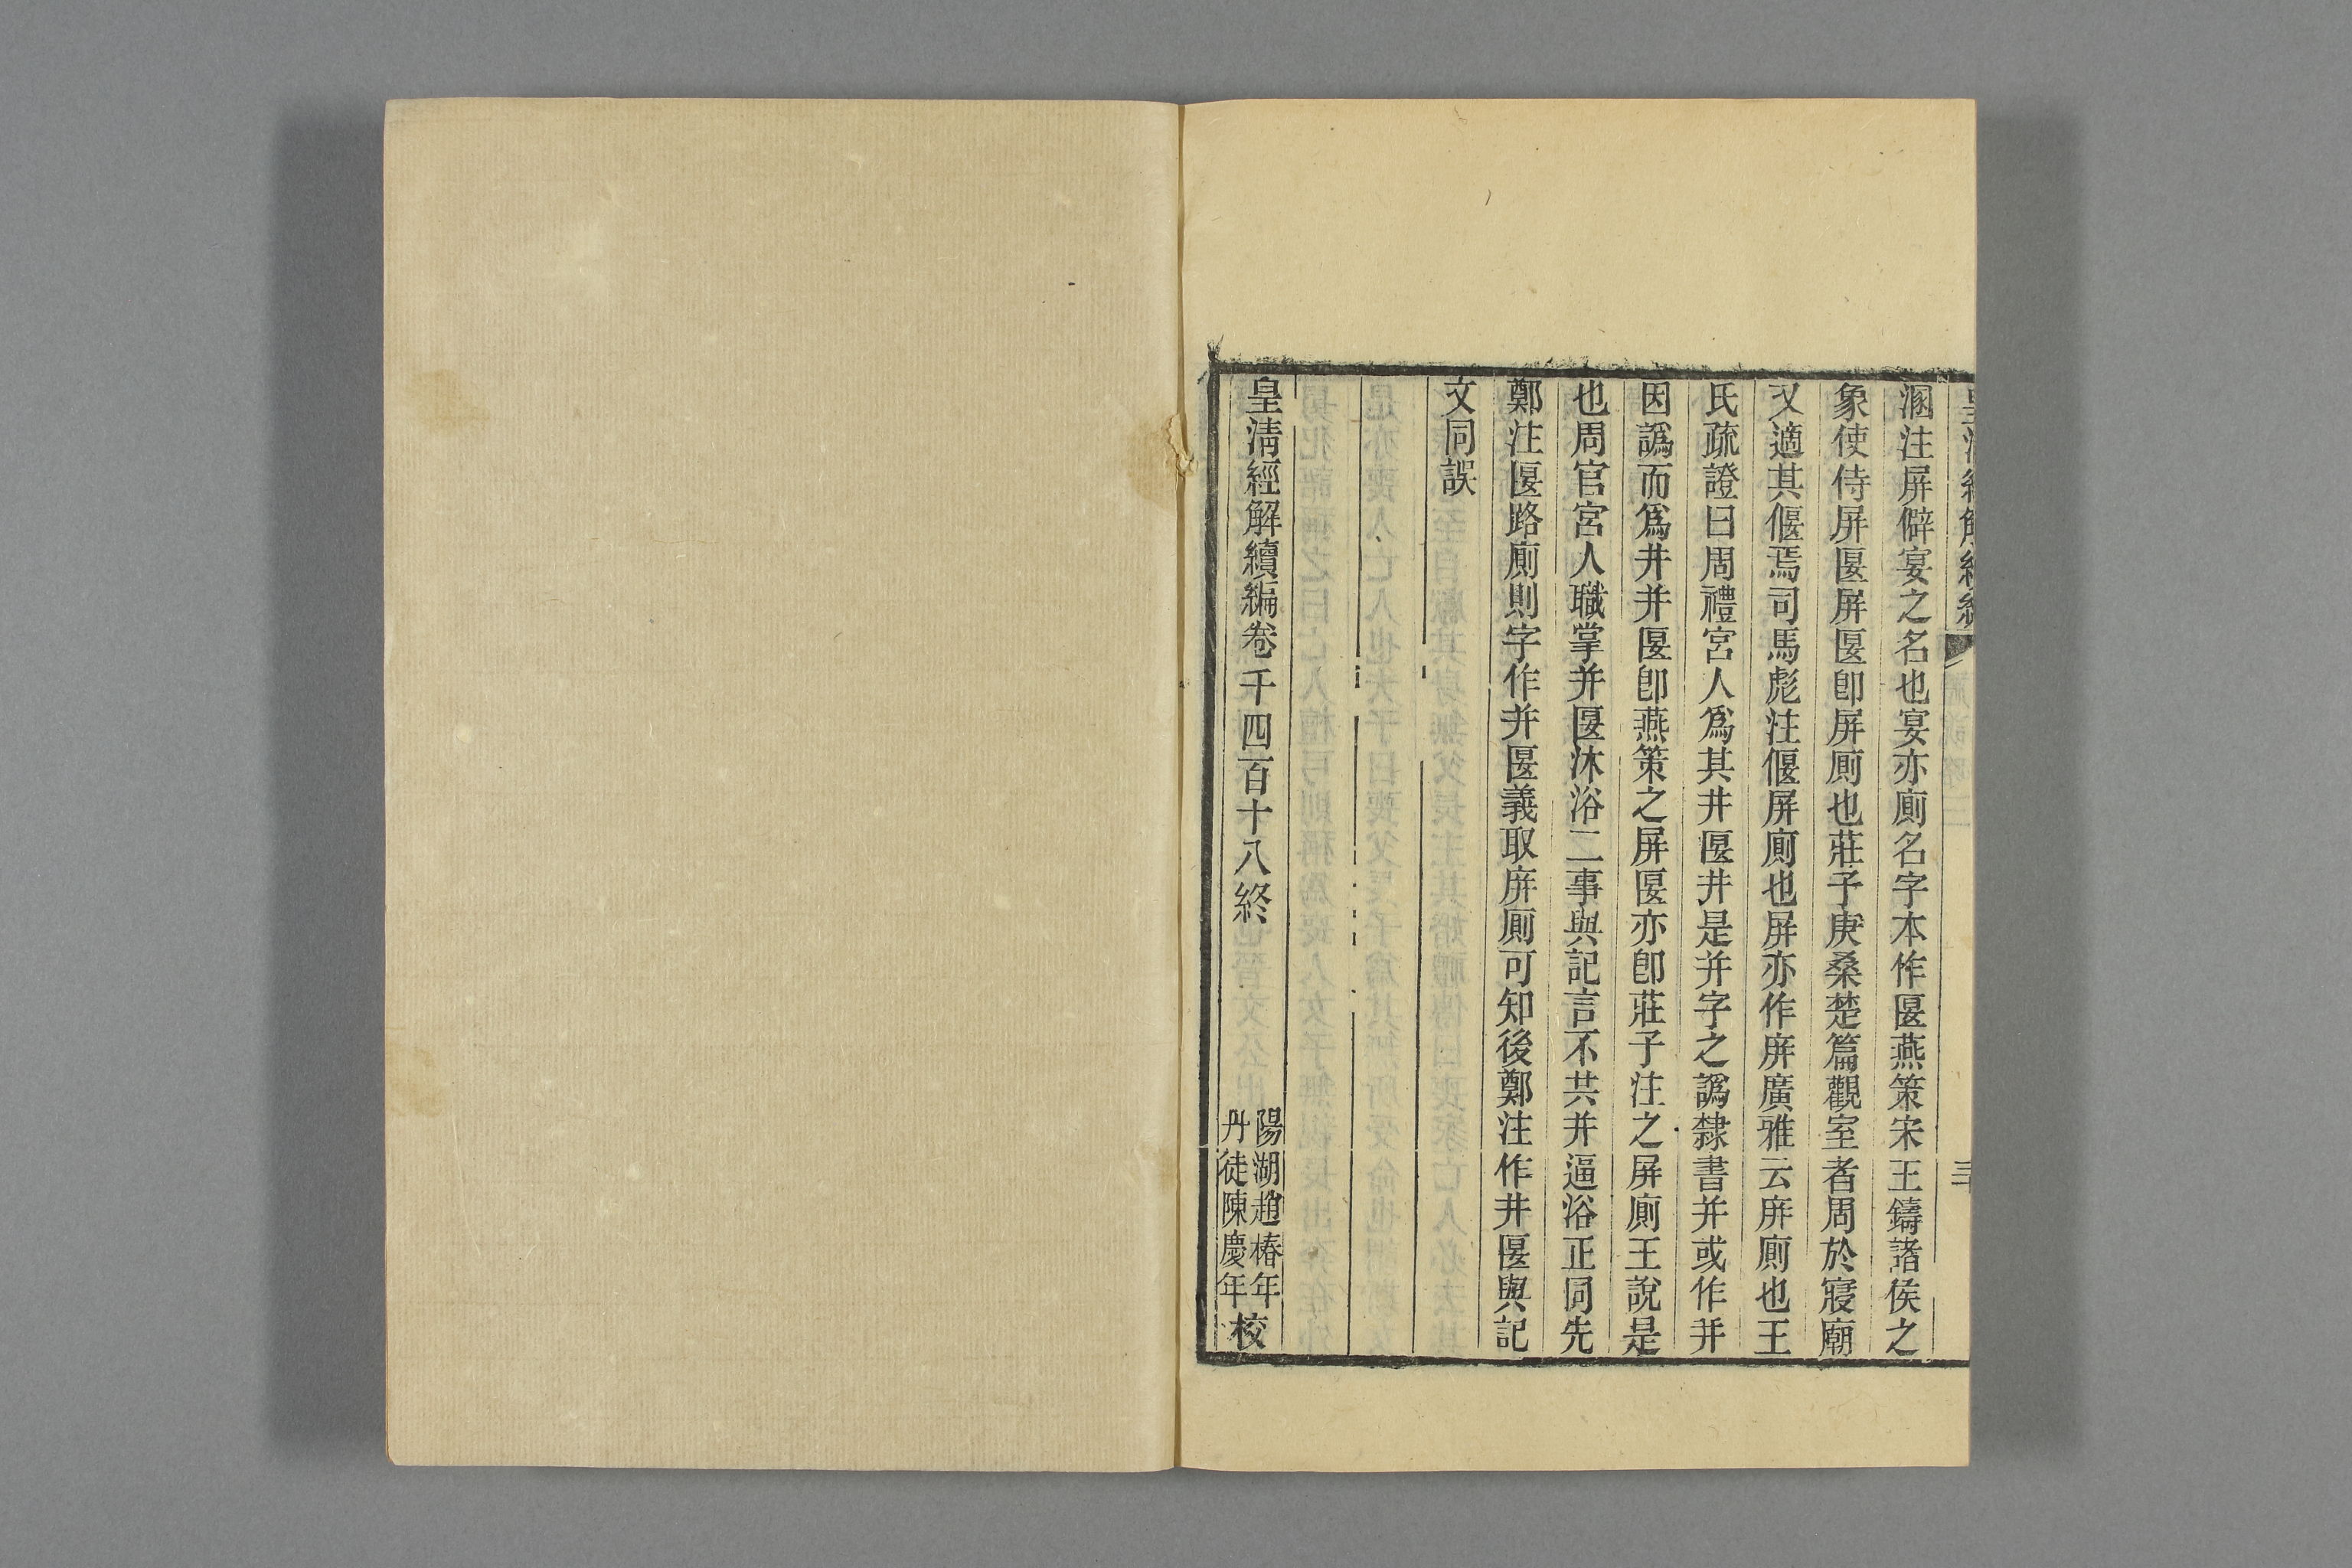 皇清經解續編
三十
溷注屏僻宴之名也宴亦廁名字本作匽燕策宋王鑄諸侯之
象使侍屏匽屏匽卽屏廁也莊子庚桑楚篇觀室者周於寢廟
又適其偃焉司馬彪注偃屏廁也屏亦作庰廣雅云庰廁也王
氏疏證曰周禮宮人爲其井匽井是并字之譌隸書并或作幷
因譌而爲井并匽卽燕策之屏匽亦卽莊子注之屏廁王說是
也周官宮人職掌并匽沐浴二事與記言不共井逼浴正同先
鄭注匽路廁則字作并匽義取庰廁可知後鄭注作井匽與記
文同誤
皇清經解續編卷千四百十八終
陽湖趙椿年
丹徒陳慶年校